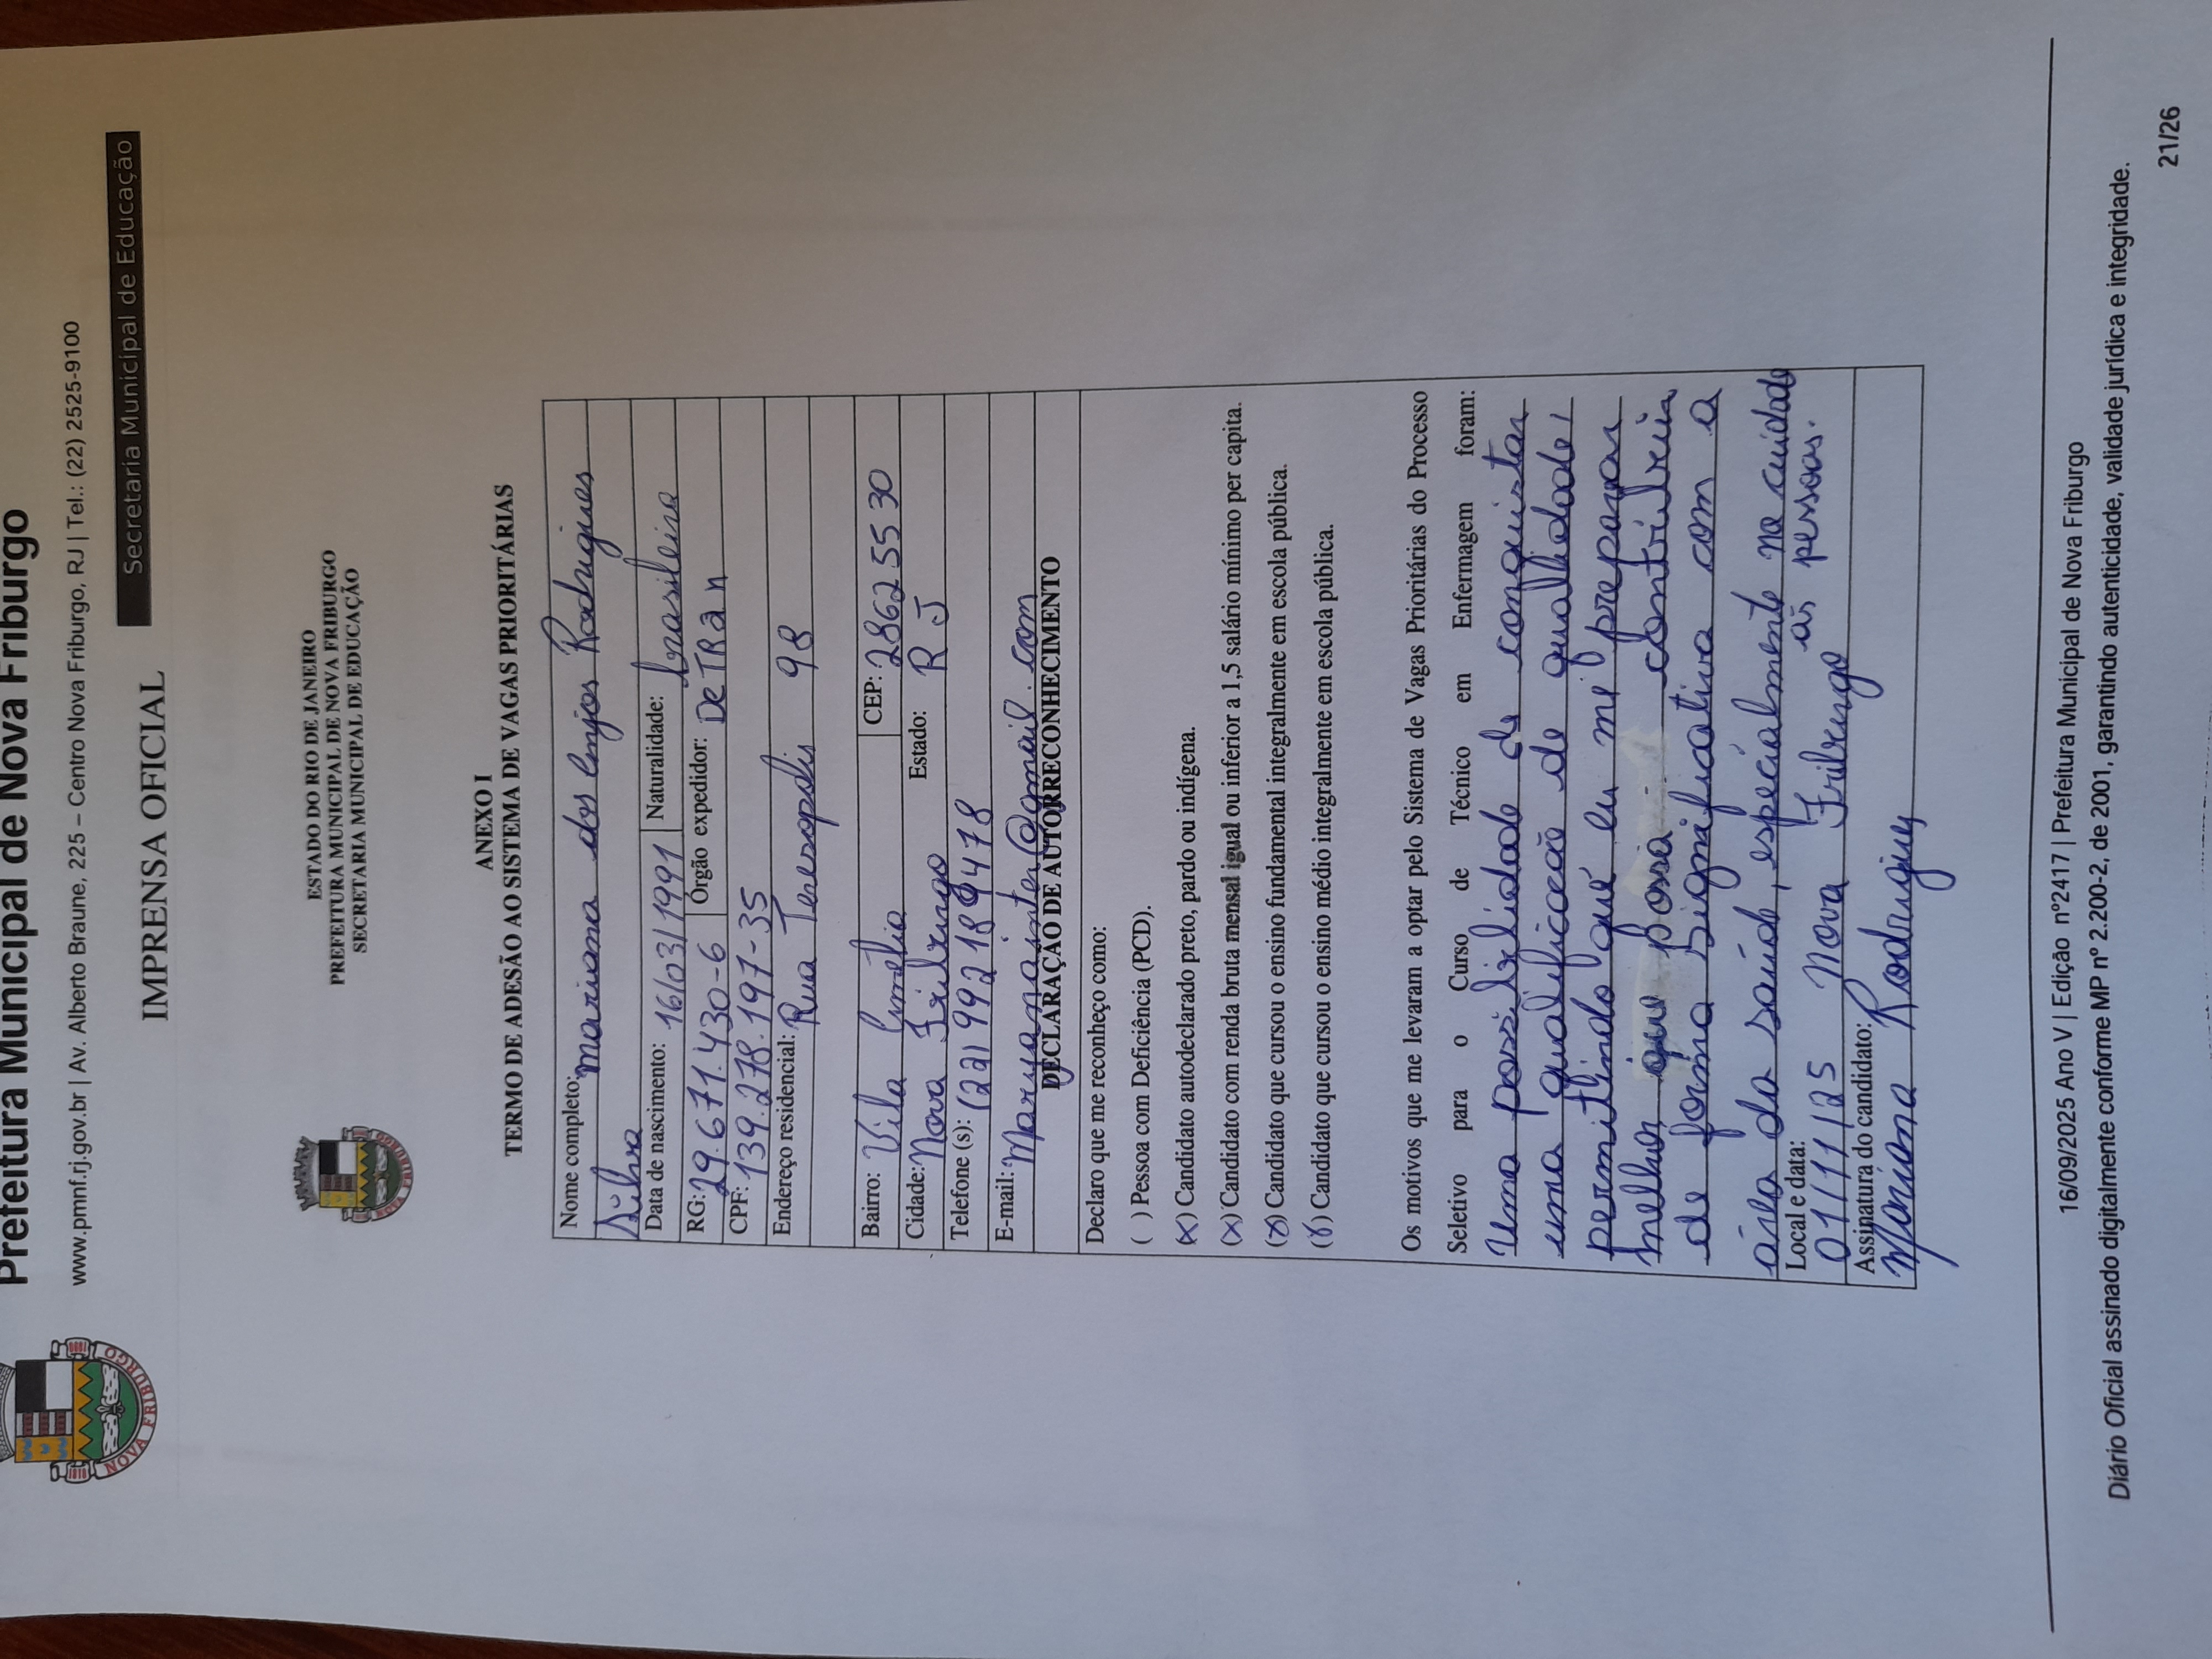 Prefeitura Municipal de Nova Friburgo
www.pmnf.rj.gov.br | Av. Alberto Braune, 225 – Centro Nova Friburgo, RJ | Tel.: (22) 2525-9100
Secretaria Municipal de Educação
NOVA FRIBURGO
IMPRENSA OFICIAL
ESTADO DO RIO DE JANEIRO
PREFEITURA MUNICIPAL DE NOVA FRIBURGO
SECRETARIA MUNICIPAL DE EDUCAÇÃO
NOVA FRIBURGO
ANEXO I
TERMO DE ADESÃO AO SISTEMA DE VAGAS PRIORITÁRIAS
Nome completo: Mariana dos Anjos Rodrigues
Silva
Data de nascimento: 16/03/1991 Naturalidade: brasileira
RG: 29.671.430-6 Órgão expedidor: DeTRan
CPF: 139.278.197-35
Endereço residencial: Rua Teresopolis 98
Bairro: Vila Amélia CEP: 28625530
Cidade: Nova Friburgo Estado: RJ
Telefone (s): (22) 992189478
E-mail: Maryanainter@gmail.com
DECLARAÇÃO DE AUTORRECONHECIMENTO
Declaro que me reconheço como:
( ) Pessoa com Deficiência (PCD).
(X) Candidato autodeclarado preto, pardo ou indígena.
(X) Candidato com renda bruta mensal igual ou inferior a 1,5 salário mínimo per capita.
(X) Candidato que cursou o ensino fundamental integralmente em escola pública.
(X) Candidato que cursou o ensino médio integralmente em escola pública.
Os motivos que me levaram a optar pelo Sistema de Vagas Prioritárias do Processo
Seletivo para o Curso de Técnico em Enfermagem foram:
Uma possibilidade de conquistar
uma qualificacão de qualhidade,
permitindo que eu me preparar
melhor que possa contribuir
de forma significativa com a
área da saúde, especialmente no cuidado
as pessoas.
Local e data:
01/11/25 Nova Friburgo
Assinatura do candidato:
Mariana Rodrigues
16/09/2025 Ano V | Edição nº2417 | Prefeitura Municipal de Nova Friburgo
Diário Oficial assinado digitalmente conforme MP nº 2.200-2, de 2001, garantindo autenticidade, validade jurídica e integridade.
21/26